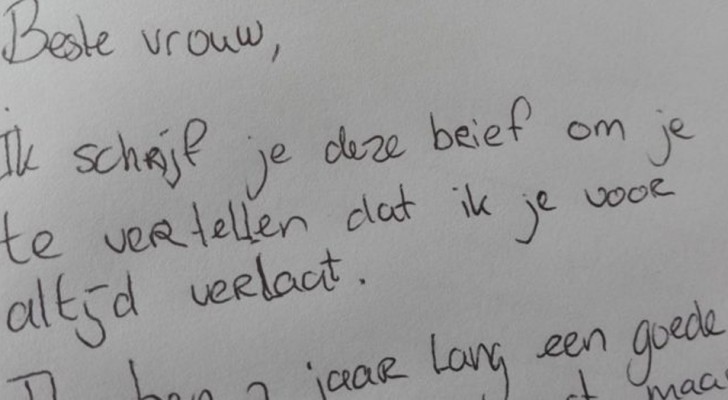 Beste vrouw,
Ik schrijf je deze beief om je
te vertellen dat ik je voor
altijd verlaat.
jaar lang een goede